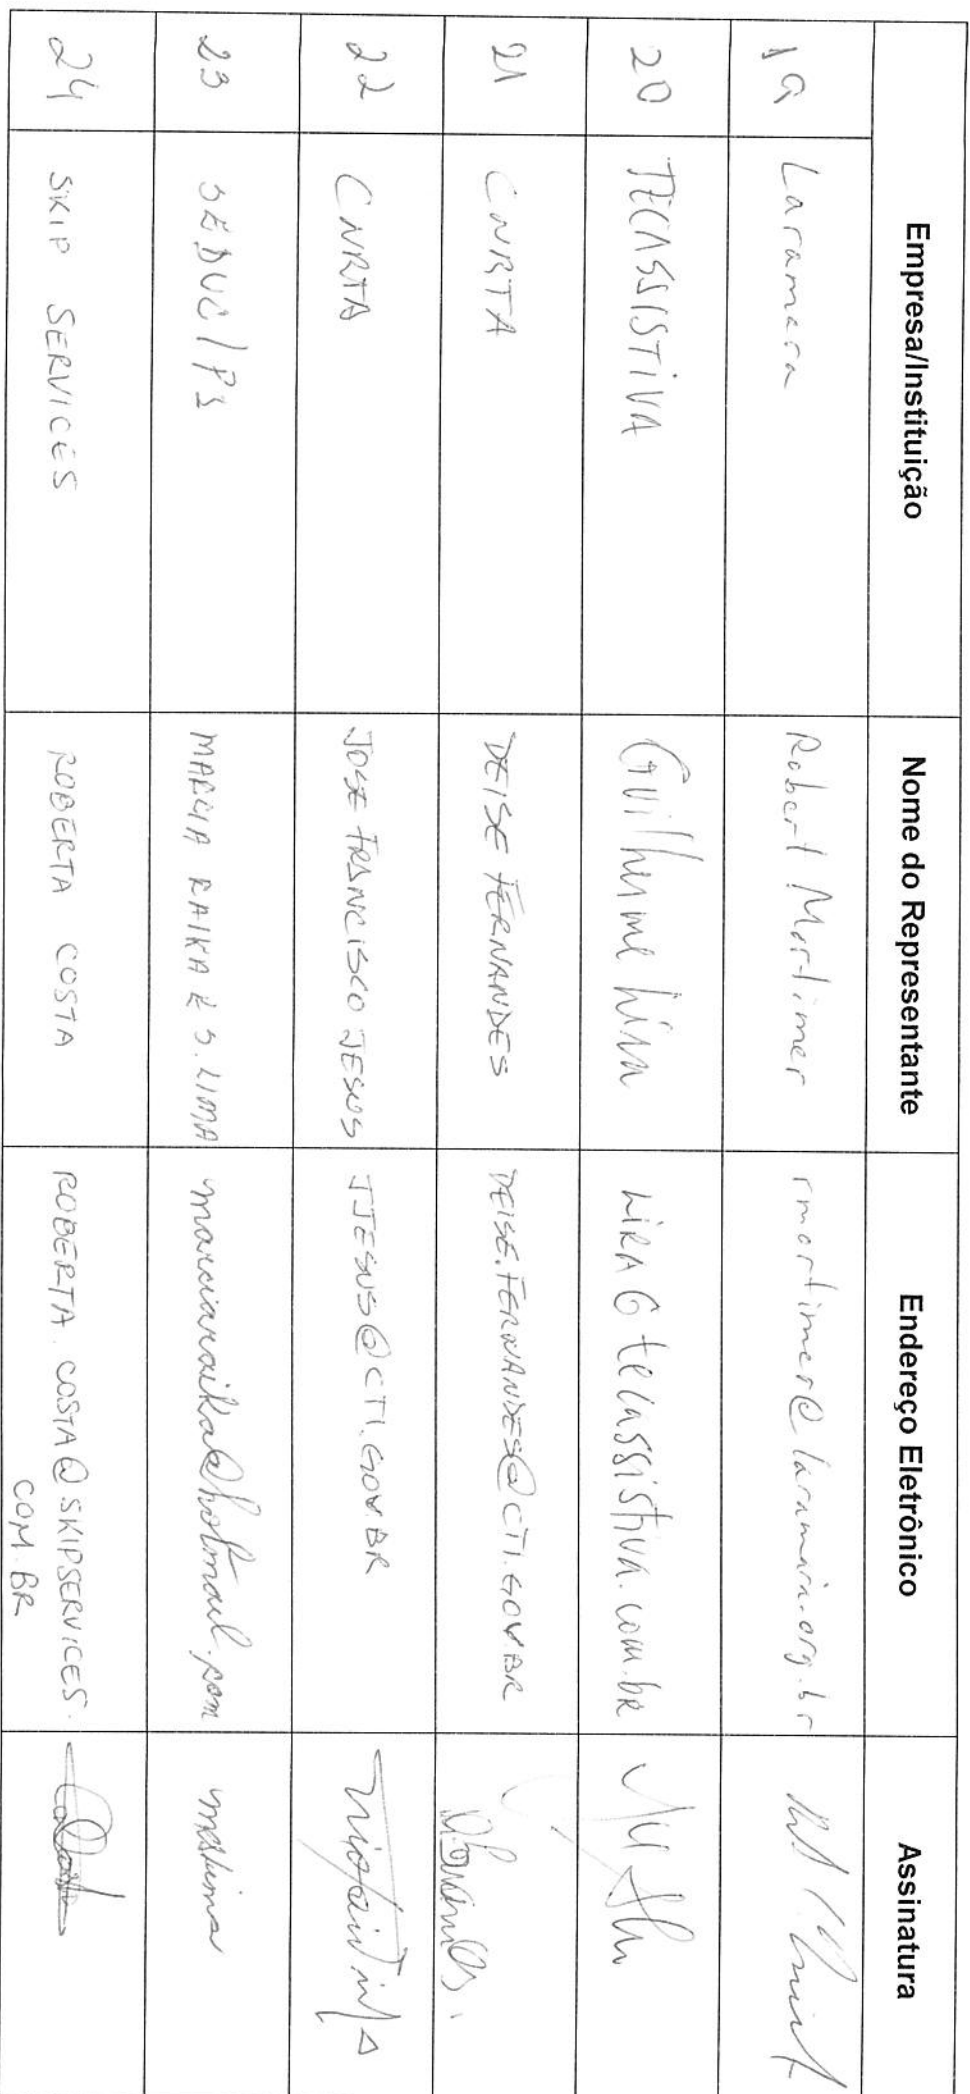 Empresa/Instituição Nome do Representante Endereço Eletrônico Assinatura
19 Laramara Robert Mortimer rmortimer@laramara.org.br
20 TECASSISTIVA Guilherme Lira LIRAG tecassistiva.com.br
21 CNRTA DEISE FERNANDES DEISE.FERNANDES@CTI.GOV.BR
22 CNRTA JOSE FRANCISCO JESUS JJESUS@CTI.GOV.BR
23 SEDUC/PI MARCIA RAIKA E S. LIMA marciaraika@hotmail.com
24 SKIP SERVICES ROBERTA COSTA ROBERTA.COSTA@SKIPSERVICES.
COM.BR